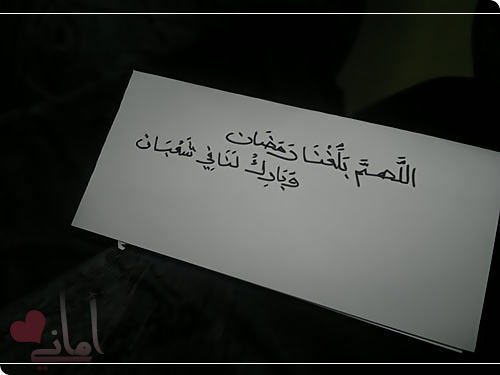 اللَّهمَّ بَلِّغْنَا رَمَضَان
وَبَارِكْ لَنَا فِي شَعْبَان
أماني